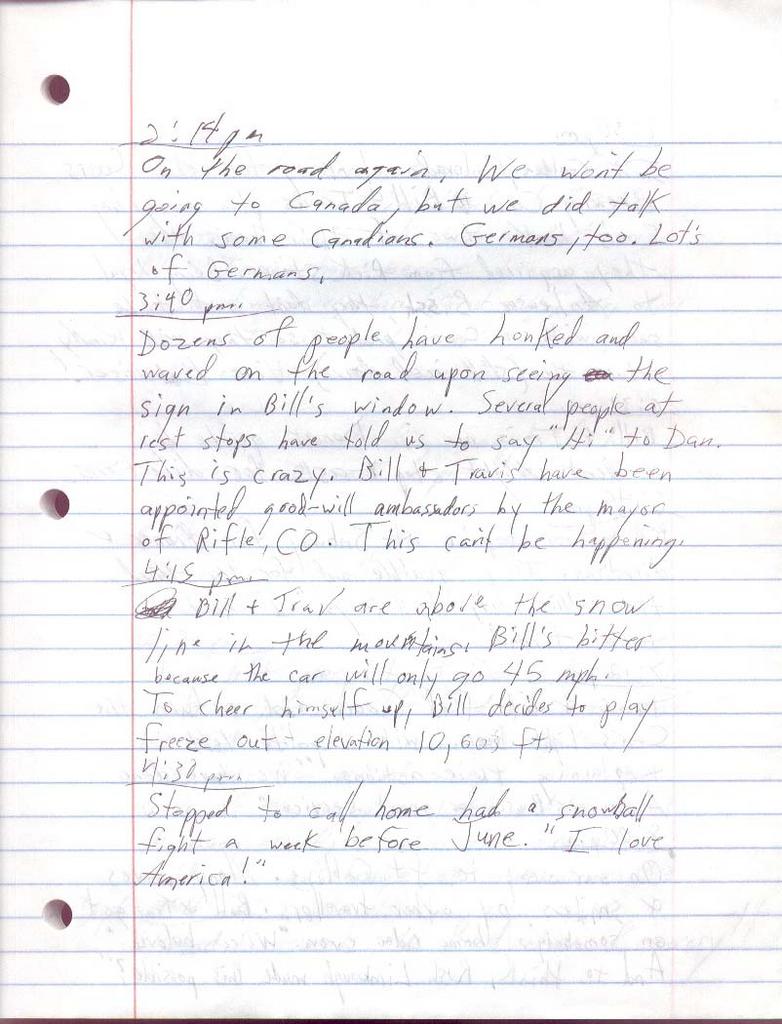 2:14 pm
On the road again. We won't be
going to Canada, but we did talk
with some Canadians. Germans, too. Lot's
of Germans.
3:40 pm.
Dozens of people have honked and
waved on the road upon seeing the
sign in Bill's window. Several people at
rest stops have told us to say "Hi" to Dan.
This is crazy. Bill + Travis have been
appointed good-will ambassadors by the mayor
of Rifle, CO. This can't be happening.
4:15 pm.
Bill + Trav are above the snow
line in the mountains. Bill's bitter
because the car will only go 45 mph.
To cheer himself up, Bill decides to play
freeze out - elevation 10,603 ft.
4:30 pm.
Stopped to call home had a snowball
fight a week before June. "I love
America!"